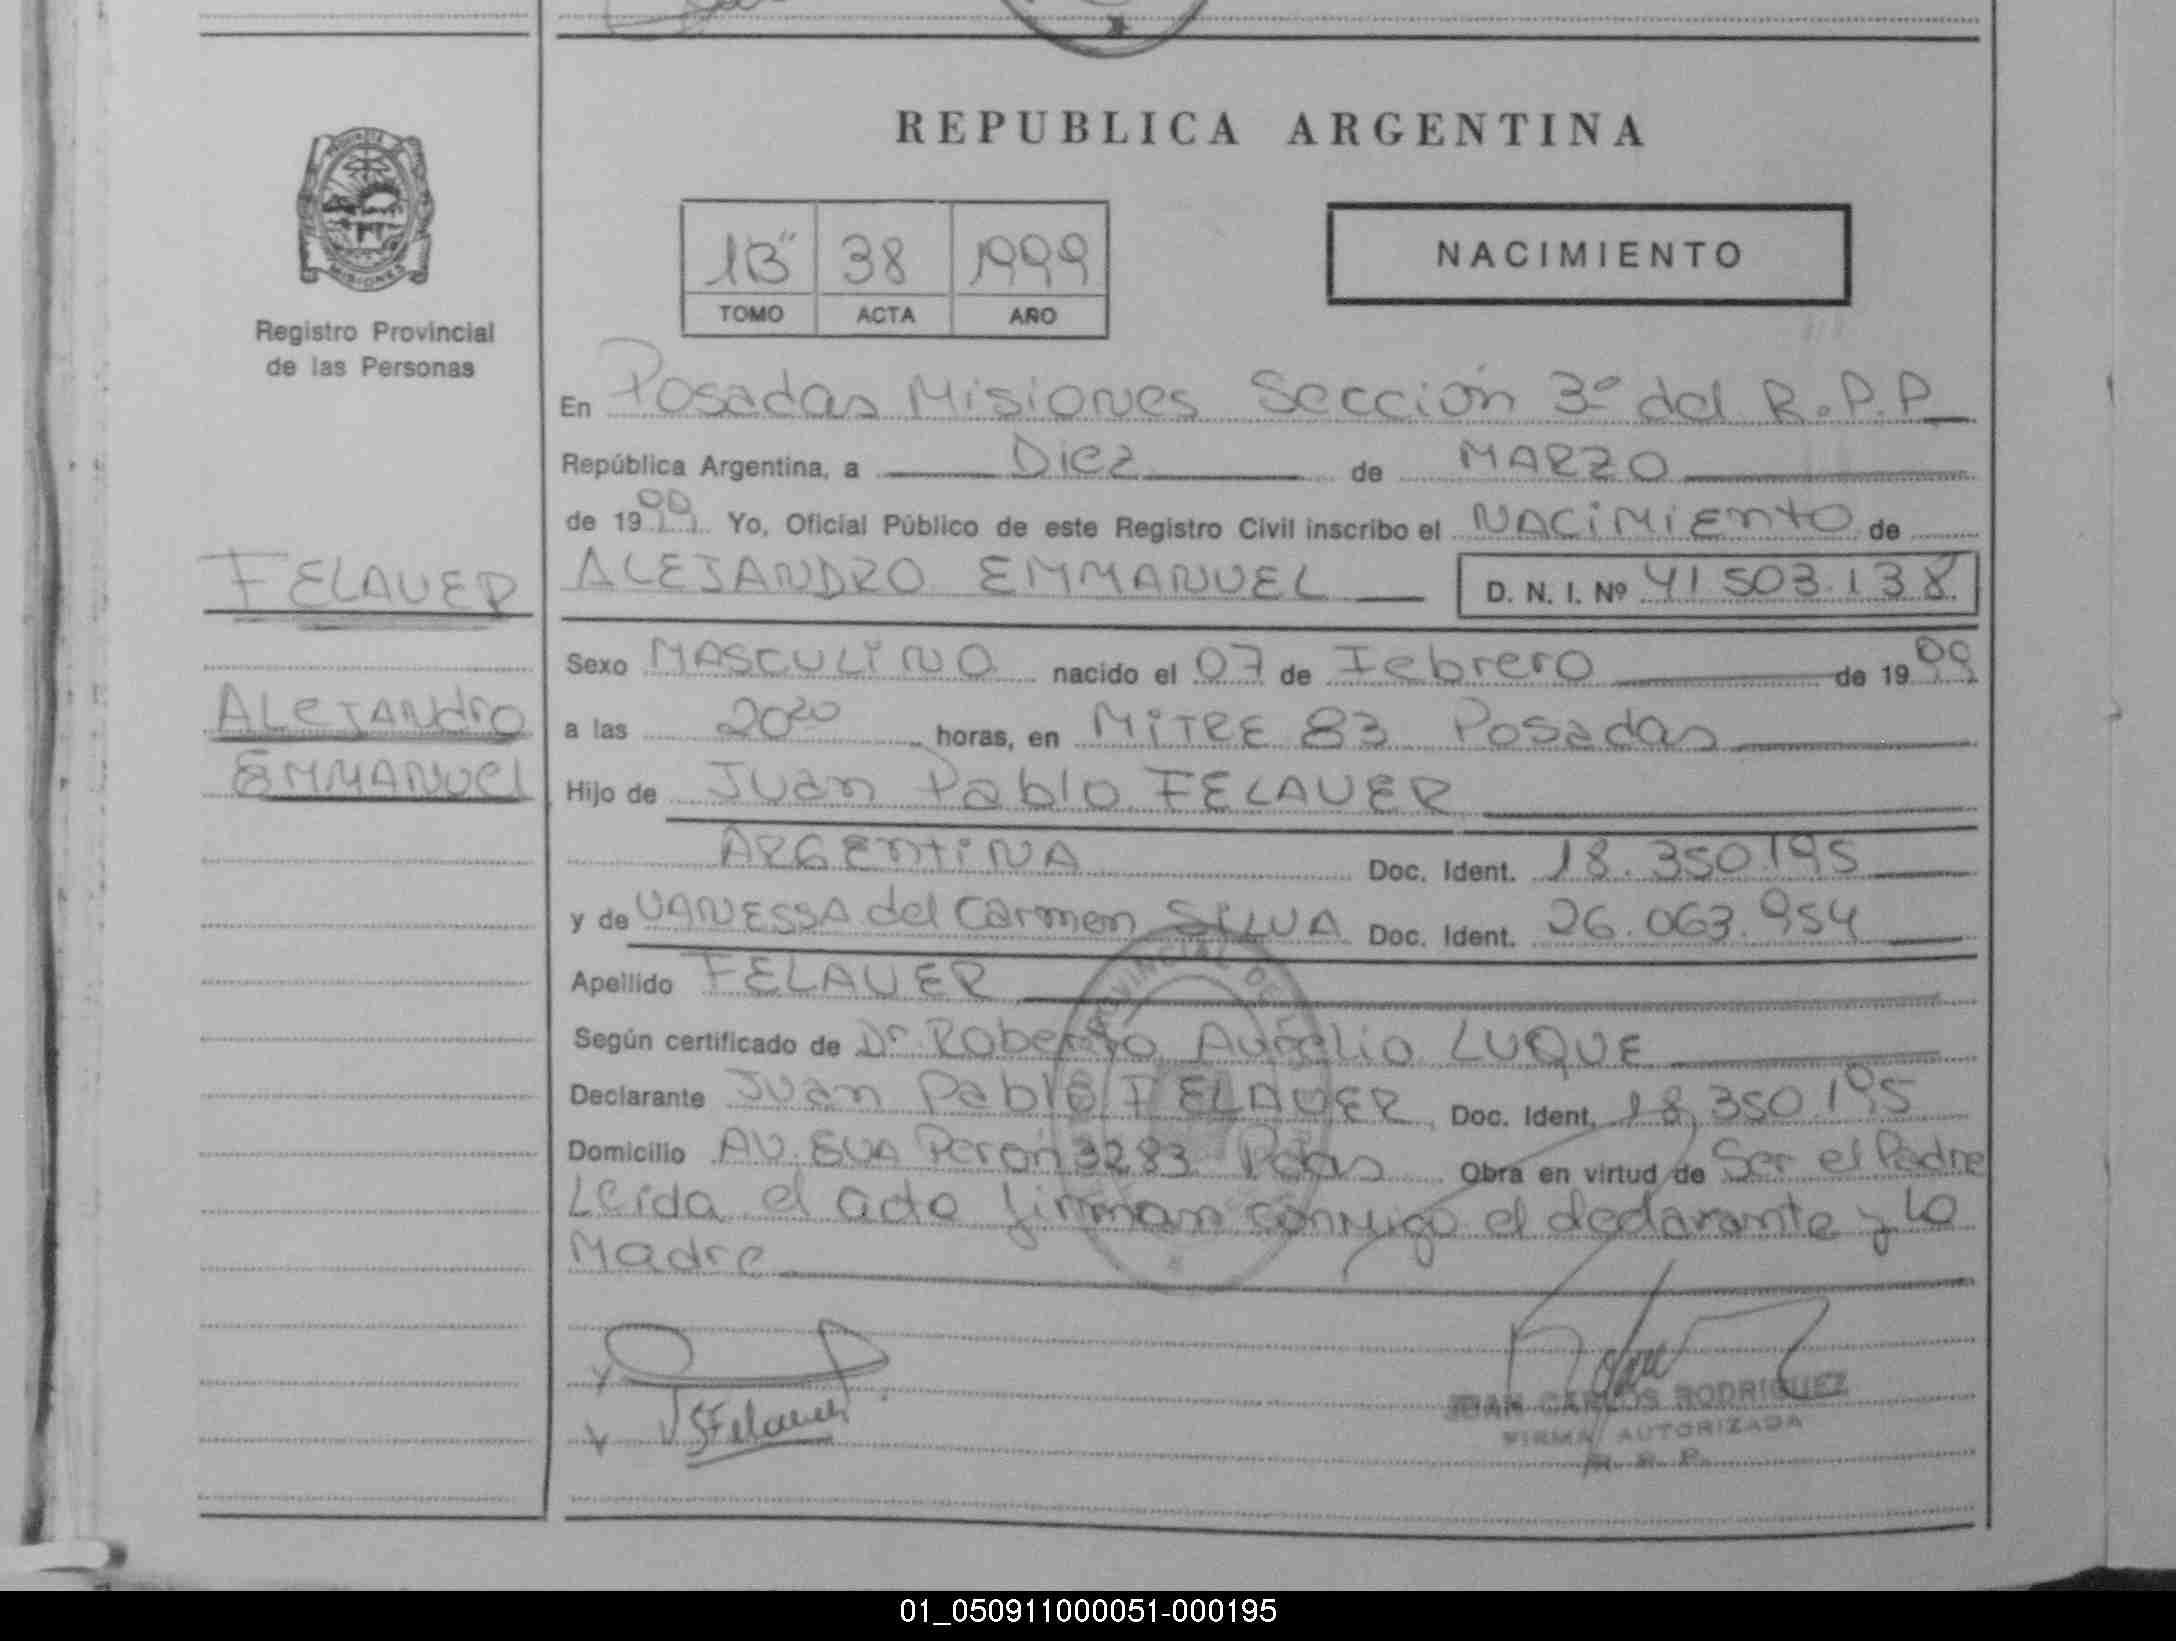 REPUBLICA ARGENTINA
PROVINCIA
MISIONES
Registro Provincial
de las Personas
1"B" 38 1999
TOMO ACTA AÑO
NACIMIENTO
En Posadas Misiones Sección 3º del R.P.P
República Argentina, a Diez de MARZO
de 1999 Yo, Oficial Público de este Registro Civil inscribo el NACIMIENTO de
FELAUER
ALEJANDRO EMMANUEL D. N. I. Nº 41503.138
Sexo MASCULINO nacido el 07 de Febrero de 1999
ALEJANDRO
EMMANUEL
a las 20²⁰ horas, en MITRE 83 Posadas
Hijo de Juan Pablo FELAUER
ARGENTINA Doc. Ident. 18.350.195
y de VANESSA del Carmen SILVA Doc. Ident. 26.063.954
Apellido FELAUER
Según certificado de Dr Roberto Aurelio LUQUE
Declarante Juan Pablo FELAUER Doc. Ident. 18.350.195
Domicilio AV. EVA Perón 3283 Pdas Obra en virtud de Ser el Padre
Leída el acta firman conmigo el declarante y la
Madre
VSFelauer
JUAN CARLOS RODRIGUEZ
FIRMA AUTORIZADA
R. P. P.
01_050911000051-000195